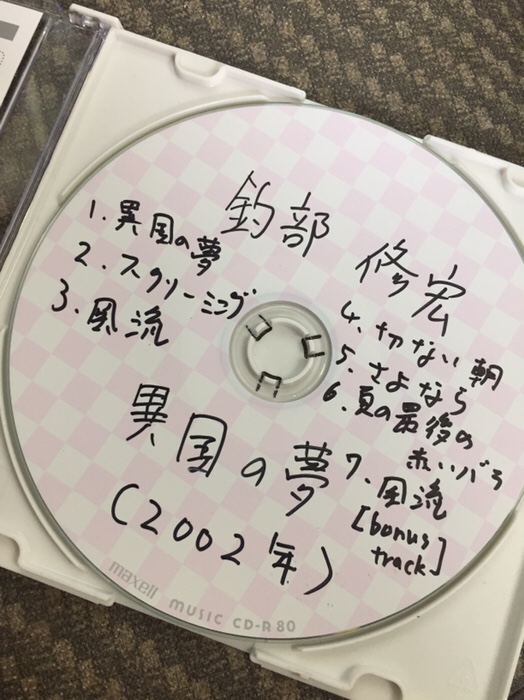 釣部 修宏
1. 異国の夢
2. スクリーミング
3. 風流
4. 切ない朝
5. さよなら
6. 夏の最後の
赤いバラ
7. 風流
[bonus
track]
異国の夢
(2002年)
maxell MUSIC CD-R 80